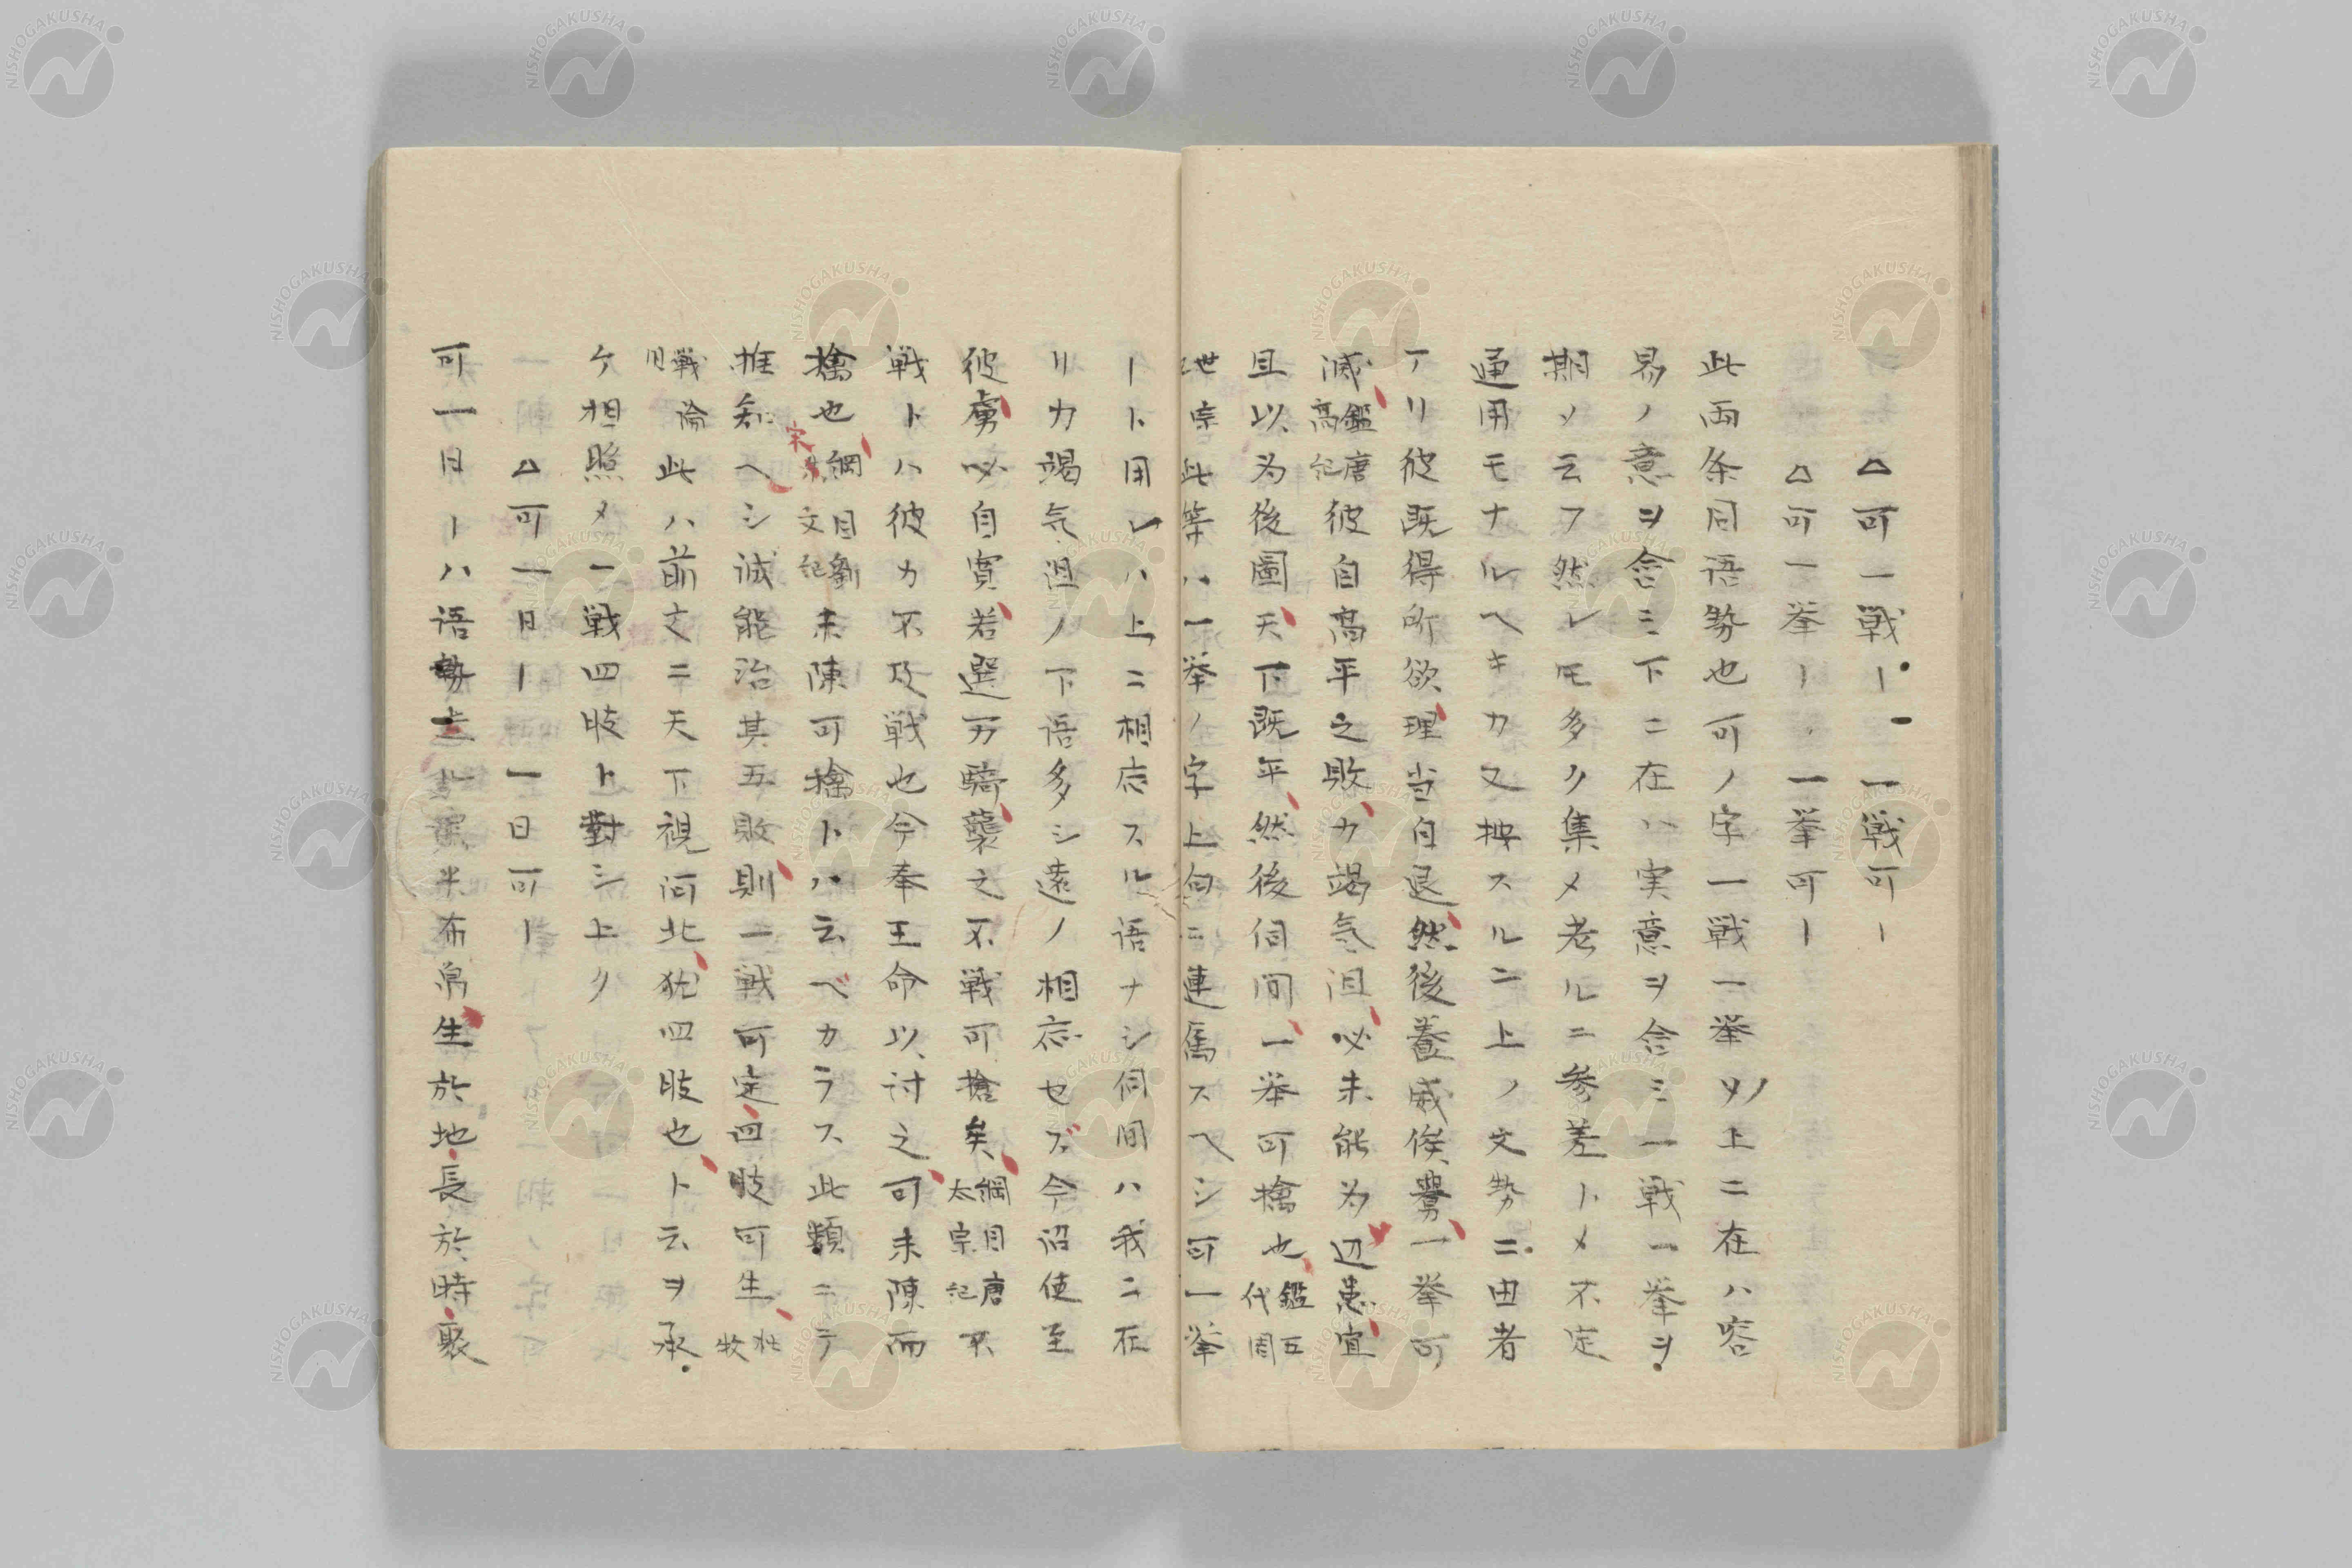 △可一戦ー　一戦可ー
△可一挙ー　一挙可ー
此両条同語勢也可ノ字一戦一挙ヨリ上ニ在ハ容
易ノ意ヲ含ミ下ニ在ハ実意ヲ含ミ一戦一挙ヲ
期メ云フ然レモ多ク集メ考ルニ参差トメ不定
通用モナルヘキカ又按スルニ上ノ文勢ニ由者
アリ彼既得所欲理当自退然後養威俟釁一挙可
滅鑑唐高紀彼自高平之敗力竭気沮必未能為辺患宜
且以為後圖天下既平然後伺間一挙可擒也鑑五代周
世宗此等ハ一挙ノ字上句ニ連属スヘシ可一挙
ート用レハ上ニ相応スル語ナシ伺間ハ我ニ在
リカ竭気沮ノ下語多シ遠ノ相応セズ今詔使至
彼虜必自寛若選万騎襲之不戦可擒矣綱目唐太宗紀不
戦トハ彼カ不及戦也今奉王命以討之可未陳而
擒也綱目劉宋文紀未陳可擒トハ云ベカラス此類ニテ
推知ヘシ誠能治其五敗則一戦可定四肢可生杜牧
戦論此ハ前文ニ天下視河北猶四肢也ト云ヲ承
ケ相照メ一戦四肢ト對シ上ク
△可一日ー　一日可ー
可一日ーハ語勢上ニ米布帛生於地長於時聚
NISHOGAKUSHA